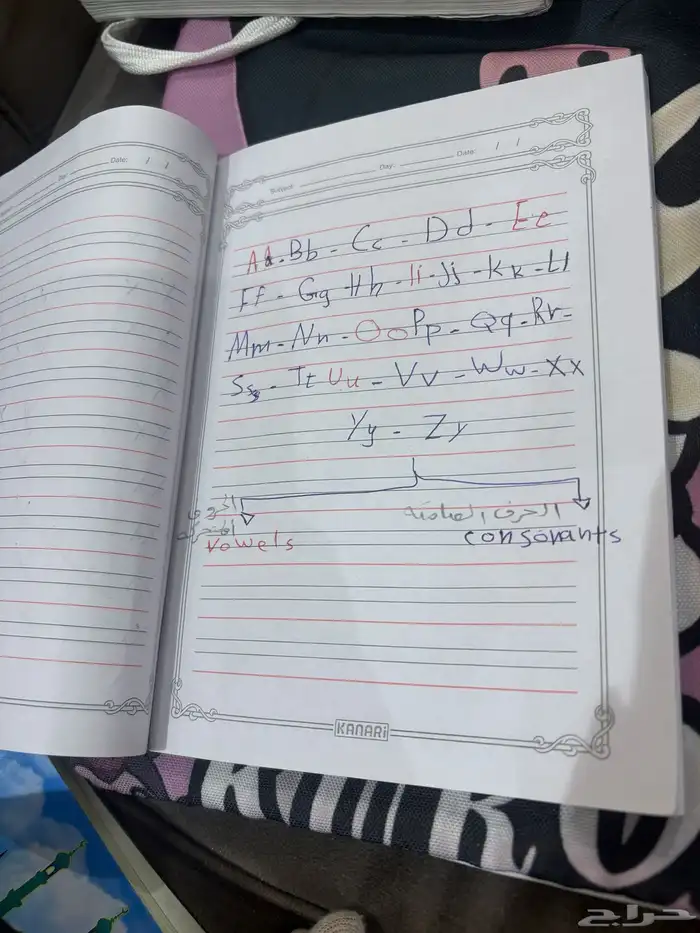 Date: / /
Subject: Day: Date: / /
Aa - Bb - Cc - Dd - Ee
Ff - Gg - Hh - Ii - Jj - Kk - Ll
Mm - Nn - Oo Pp - Qq - Rr -
Ss - Tt Uu - Vv - Ww - Xx
Yy - Zy
الحروف المتحركة
الحرف الصامته
vowels
consonants
KANARI
حراج